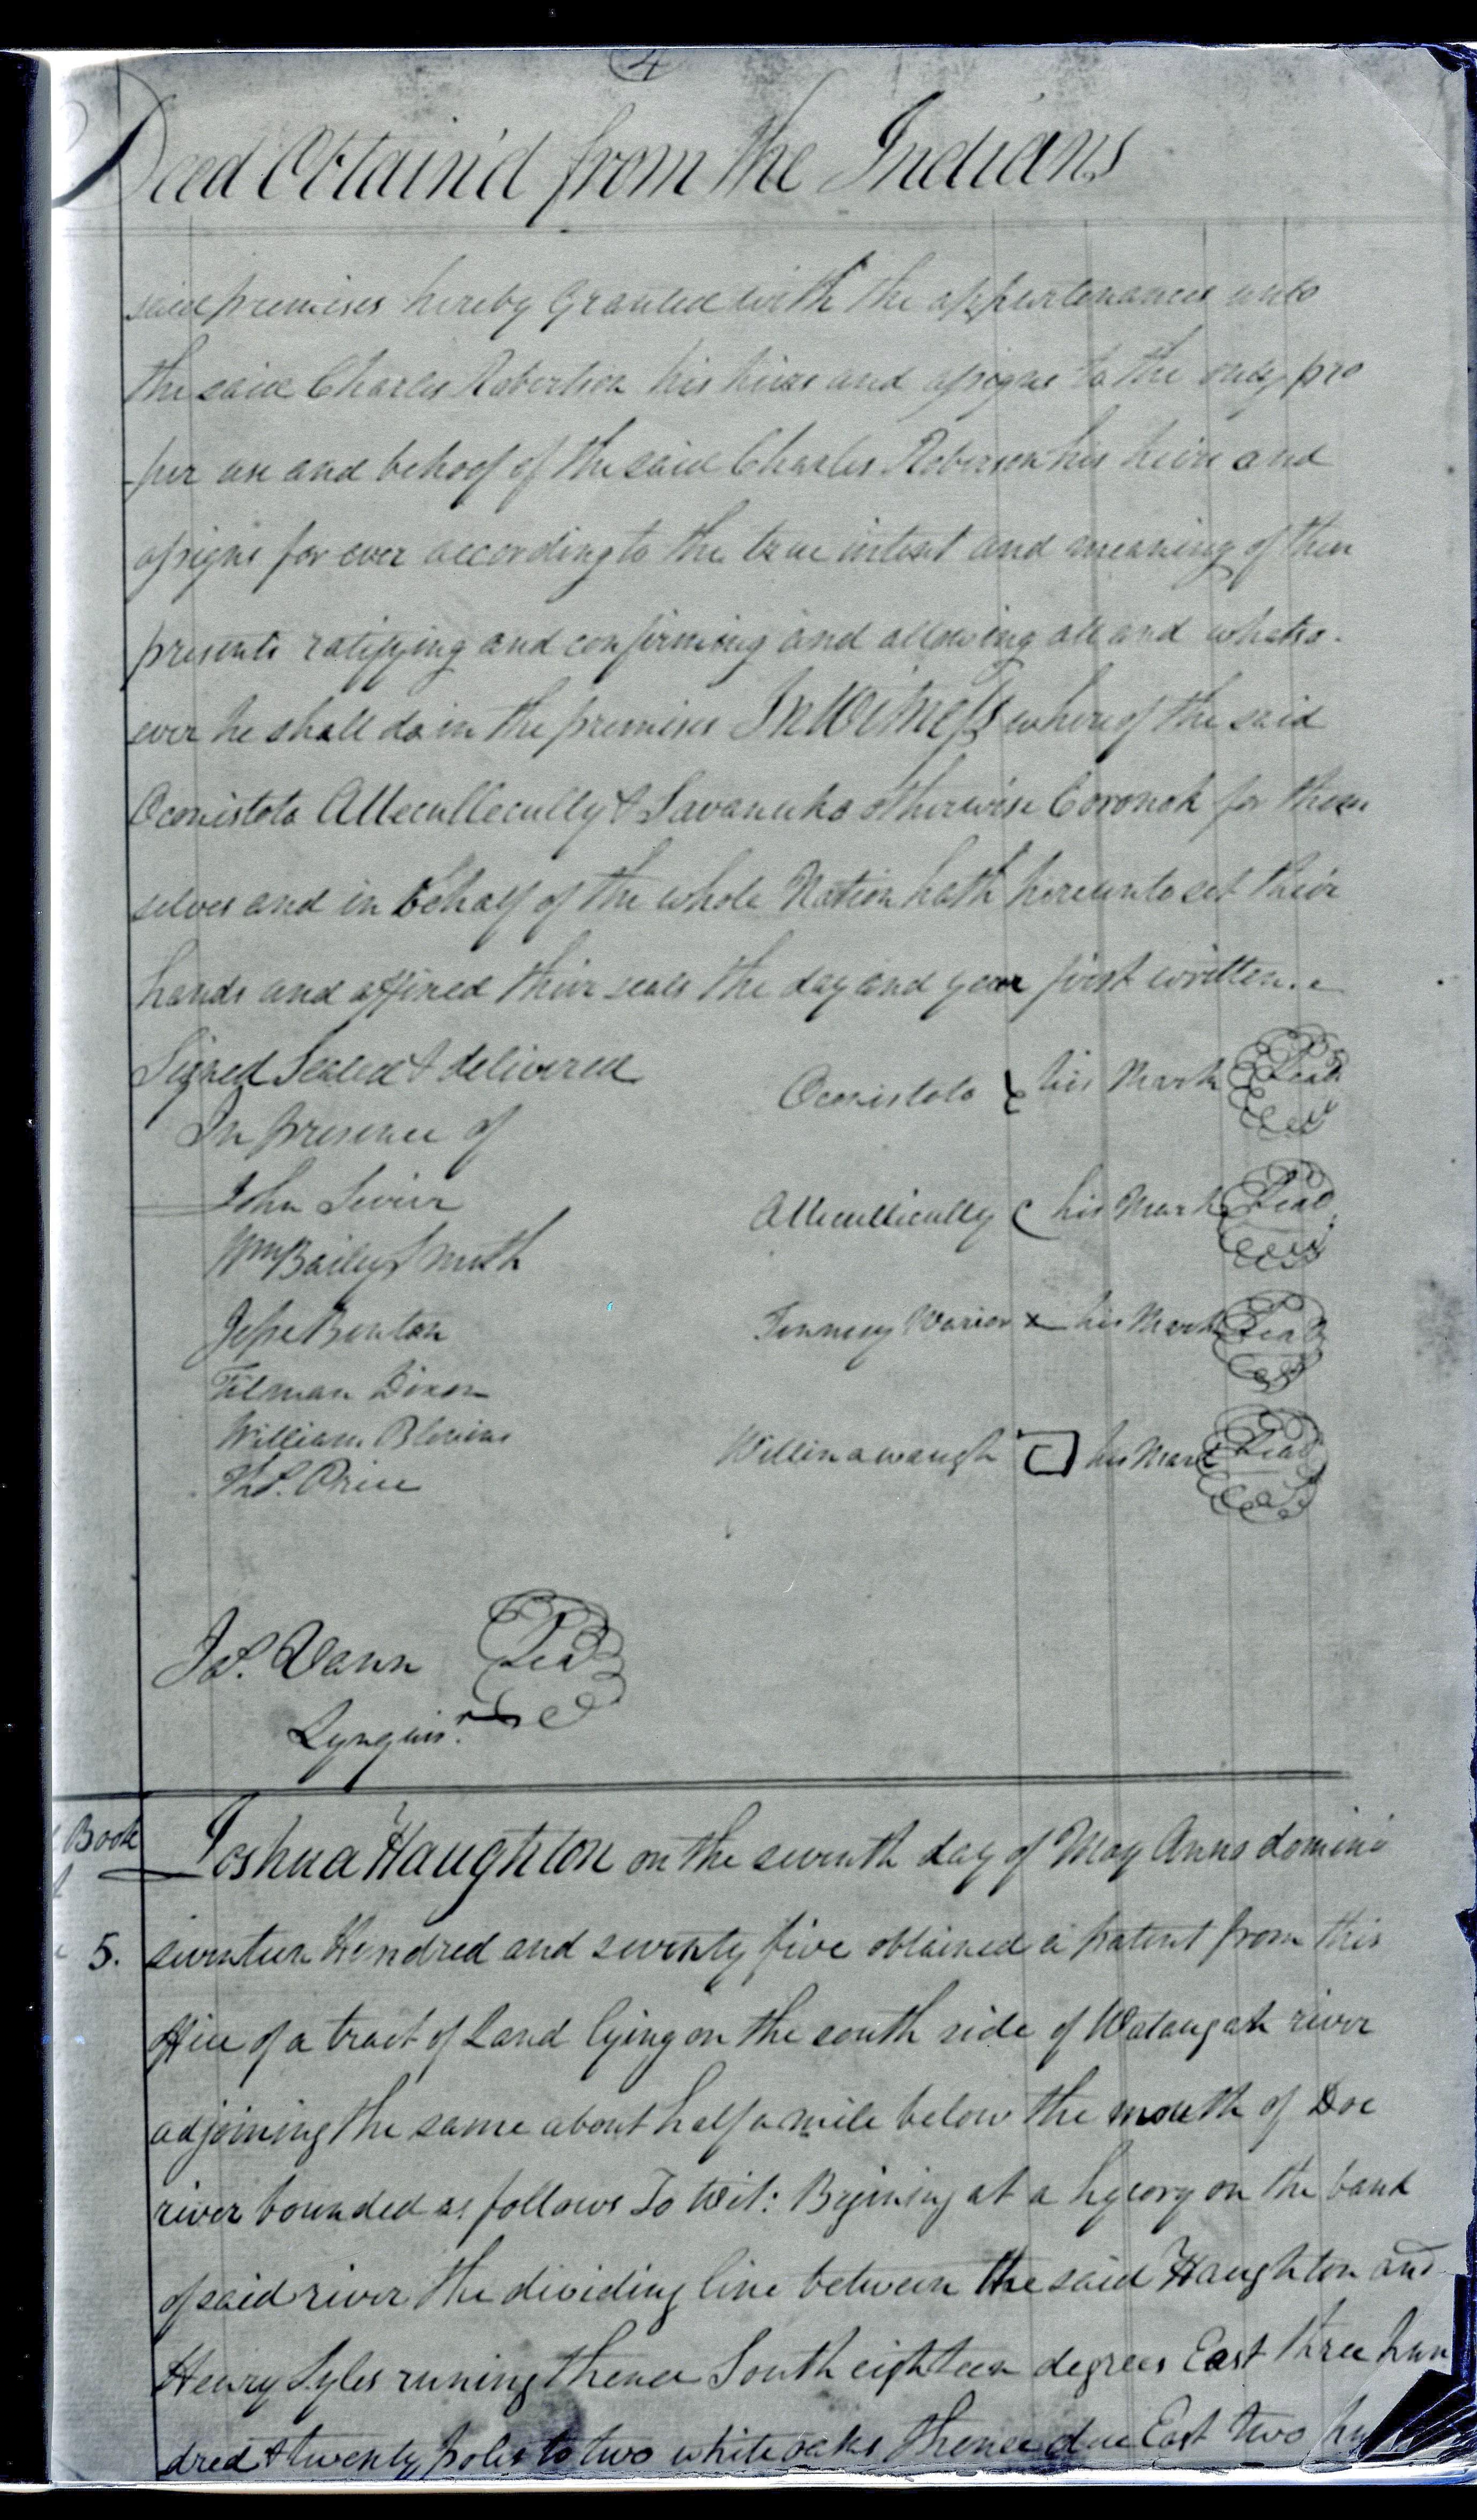 4
Deed Obtain'd from the Indians
said premises hereby Granted with the appurtenances unto
the said Charles Robertson his heirs and assigns to the only pro
per use and behoof of the said Charles Roberson his heirs and
assigns for ever according to the true intent and meaning of these
presents ratifying and confirming and allowing all and whatso-
ever he shall do in the premises In Witness whereof the said
Oconistoto Attecullecully & Savanuka otherwise Coronoh for them
selves and in behalf of the whole Nation hath hereunto set their
hands and affixed their seals the day and year first written.
Signed Sealed & delivered
In presence of
Oconistoto his Mark Seal
John Sevier
Attecullecully his Mark Seal
Wm Bailey Smith
Jesse Benton
Tennesy Warior x his Mark Seal
Tilman Dixon
William Blevins
Willinawaugh his Mark Seal
Thos. Price
Jos. Vann Seal
Lynguist.
Book
Joshua Haughton on the seventh day of May Anno domini
5. seventeen Hundred and seventy five obtained a patent from this
office of a tract of Land lying on the south side of Wataugah river
adjoining the same about half a mile below the mouth of Doe
river bounded as follows To wit: Begining at a hycory on the bank
of said river the dividing line between the said Haughton and
Henry Lyles runing thence South eighteen degrees East three hun
dred & twenty poles to two white oaks thence due East two